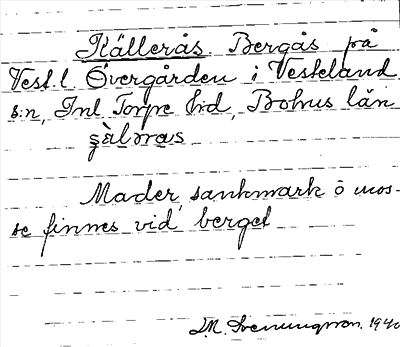 Källerås. Bergås på
Vest.l Övergården i Vesteland
s:n, Inl Torpe hd, Bohus län
sälåras
Mader, sankmark o mos-
se finnes vid berget
M. Svenungsson. 1940